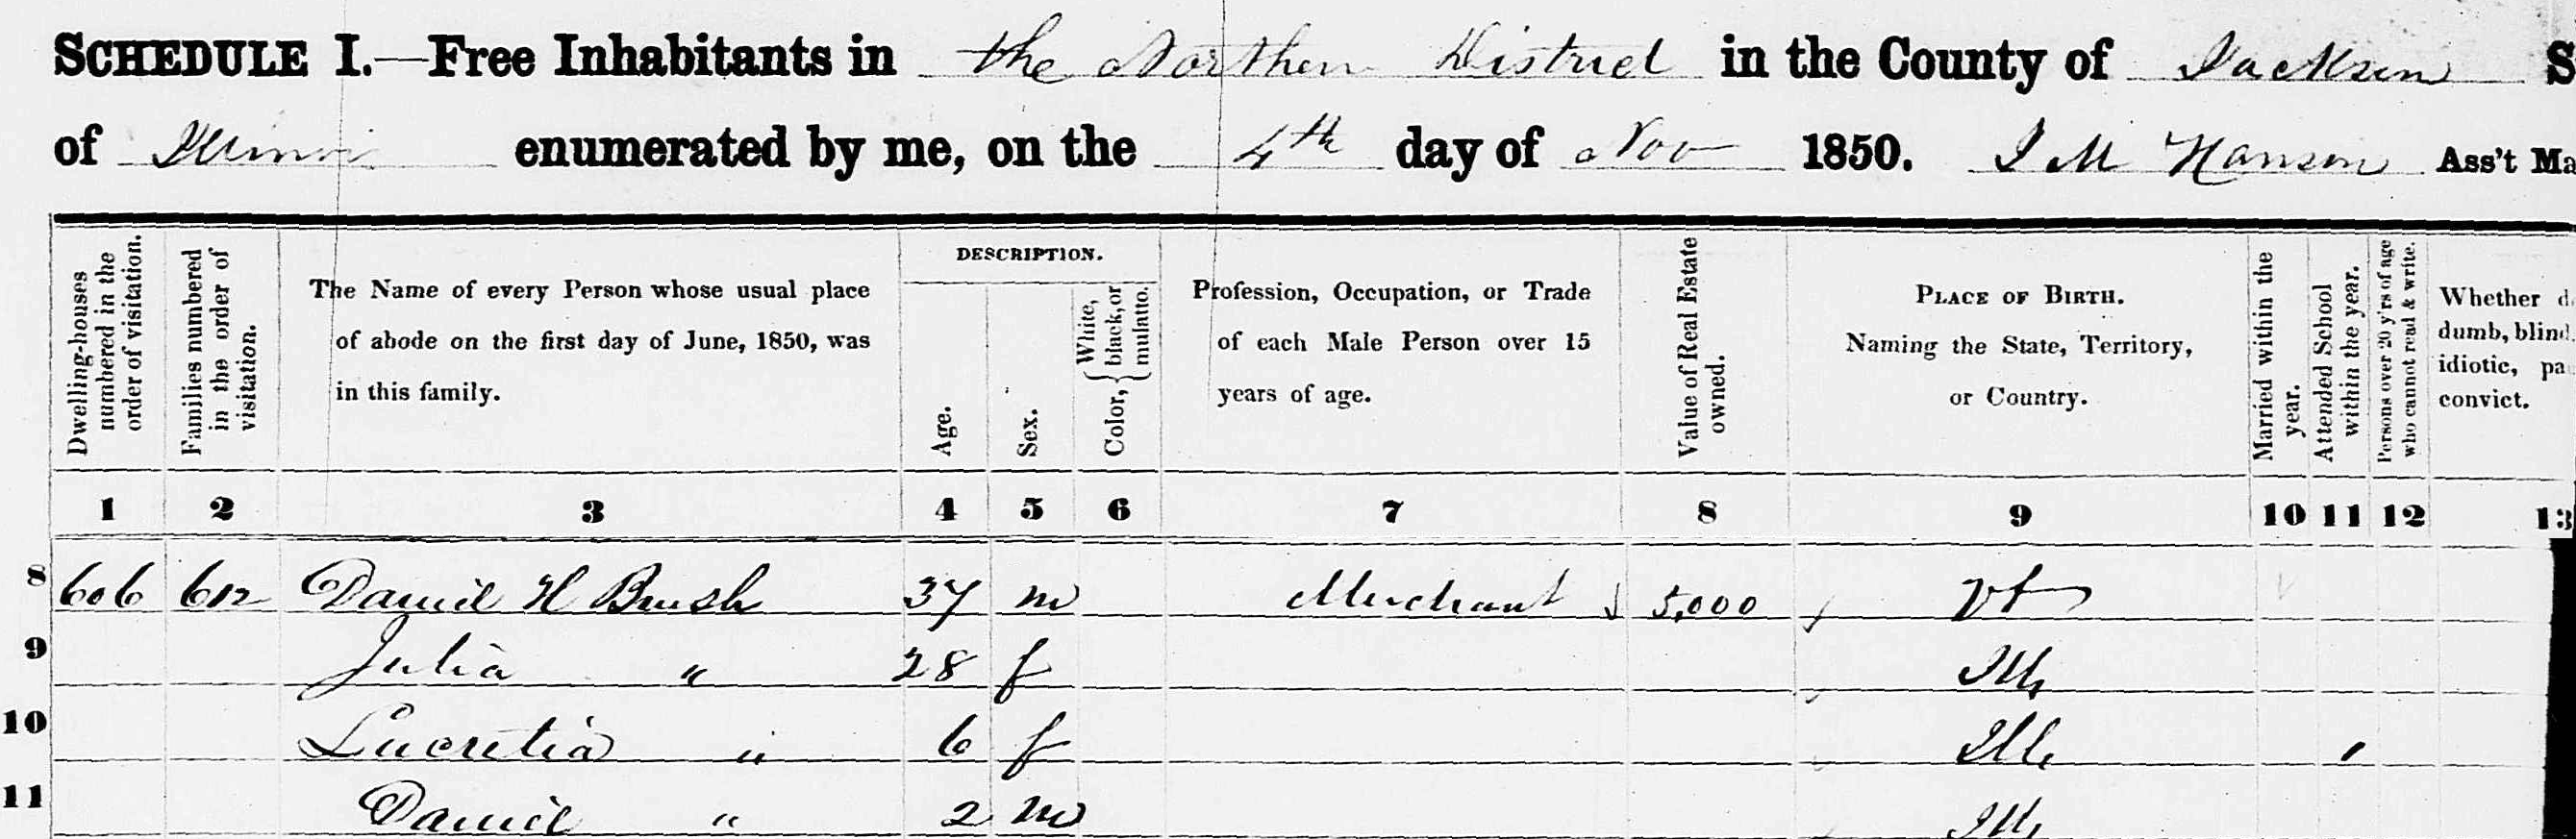 SCHEDULE I.—Free Inhabitants in the Northern District in the County of Jackson S
of Illinois enumerated by me, on the 4th day of Nov 1850. J M Hanson Ass't Ma
Dwelling-houses numbered in the order of visitation.
Families numbered in the order of visitation.
The Name of every Person whose usual place
of abode on the first day of June, 1850, was
in this family.
DESCRIPTION.
Age.
Sex.
Color, { White, black, or mulatto.
Profession, Occupation, or Trade
of each Male Person over 15
years of age.
Value of Real Estate owned.
PLACE OF BIRTH.
Naming the State, Territory,
or Country.
Married within the year.
Attended School within the year.
Persons over 20 y'rs of age who cannot read & write.
Whether d
dumb, blind,
idiotic, pa
convict.
1 2 3 4 5 6 7 8 9 10 11 12 13
8 606 612 Daniel H Brush 37 m Merchant 5,000 Vt
9 Julia " 28 f Ills
10 Lucretia " 6 f Ills /
11 Daniel " 2 m Ills